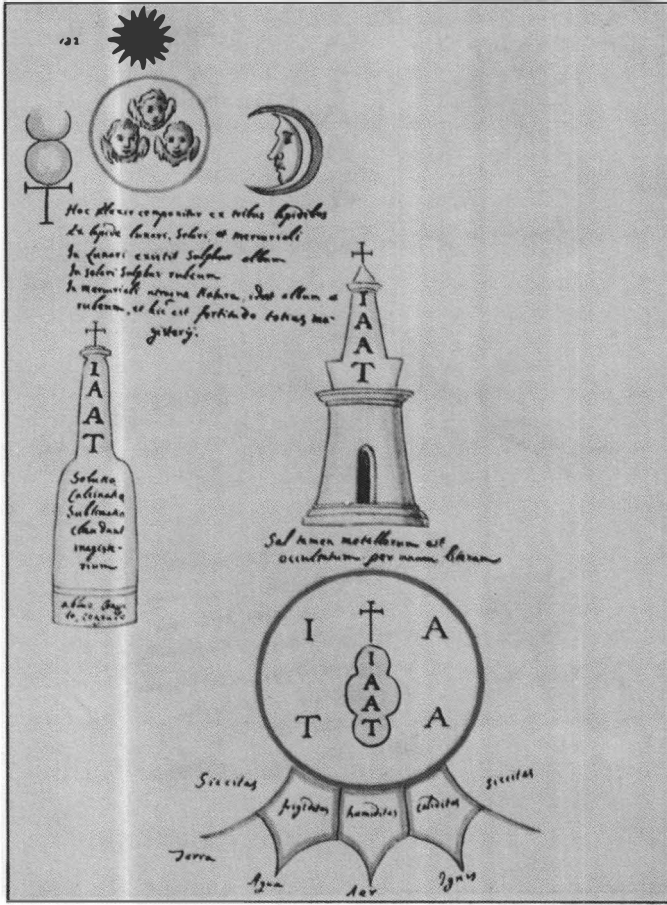 132
Hoc Elixir componitur ex tribus lapidibus
Ex lapide lunari, Solari et mercuriali
In Lunari existit Sulphur album
In solari Sulphur rubeum
In mercuriali utraque Natura, idest album et
rubeum, et hic est fortitudo totius ma-
gisterij.
I
A
A
T
Soluta
Calcinata
Sublimata
claudunt
magiste-
rium
ablue
I
A
A
T
Sal tamen metallorum est
occultatum per unam literam
I A
I
A
A
T
T A
Siccitas
frigiditas
humiditas
caliditas
siccitas
Terra
Aqua
Aer
Ignis